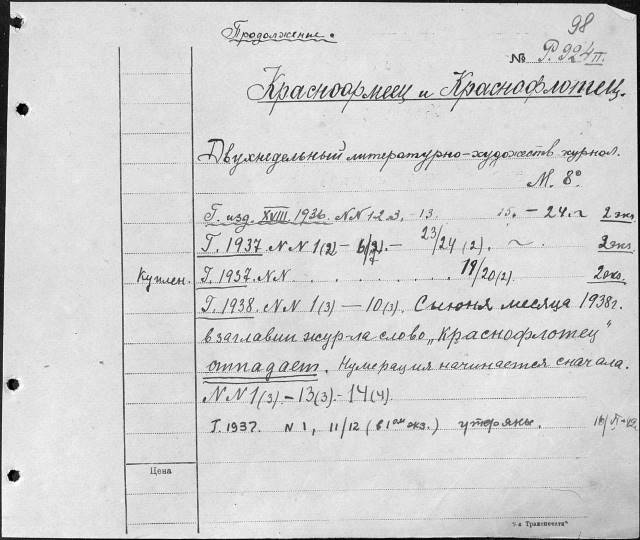 Продолжение.
98
№ Р. 924 п.
Красноармеец и Краснофлотец.
Двухнедельный литературно-художеств журнал.
М. 8°
Г. изд. XVIII. 1936. NN 1 2 3, - 13. 15. — 24. 2 экз.
Г. 1937 N N 1(2) — 6/7(2) — 23/24 (2). 2 экз.
Куплен. Г. 1937. N N . . . . . . . 19/20(2). 2 экз.
Г. 1938. N N 1(3) — 10(3). С июня месяца 1938 г.
в заглавии жур-ла слово „Краснофлотец"
отпадает. Нумерация начинается сначала.
N N 1(3). — 13(3) - 14(4).
Г. 1937. N 1, 11/12 (в 1ом экз.) утеряны.
Цена